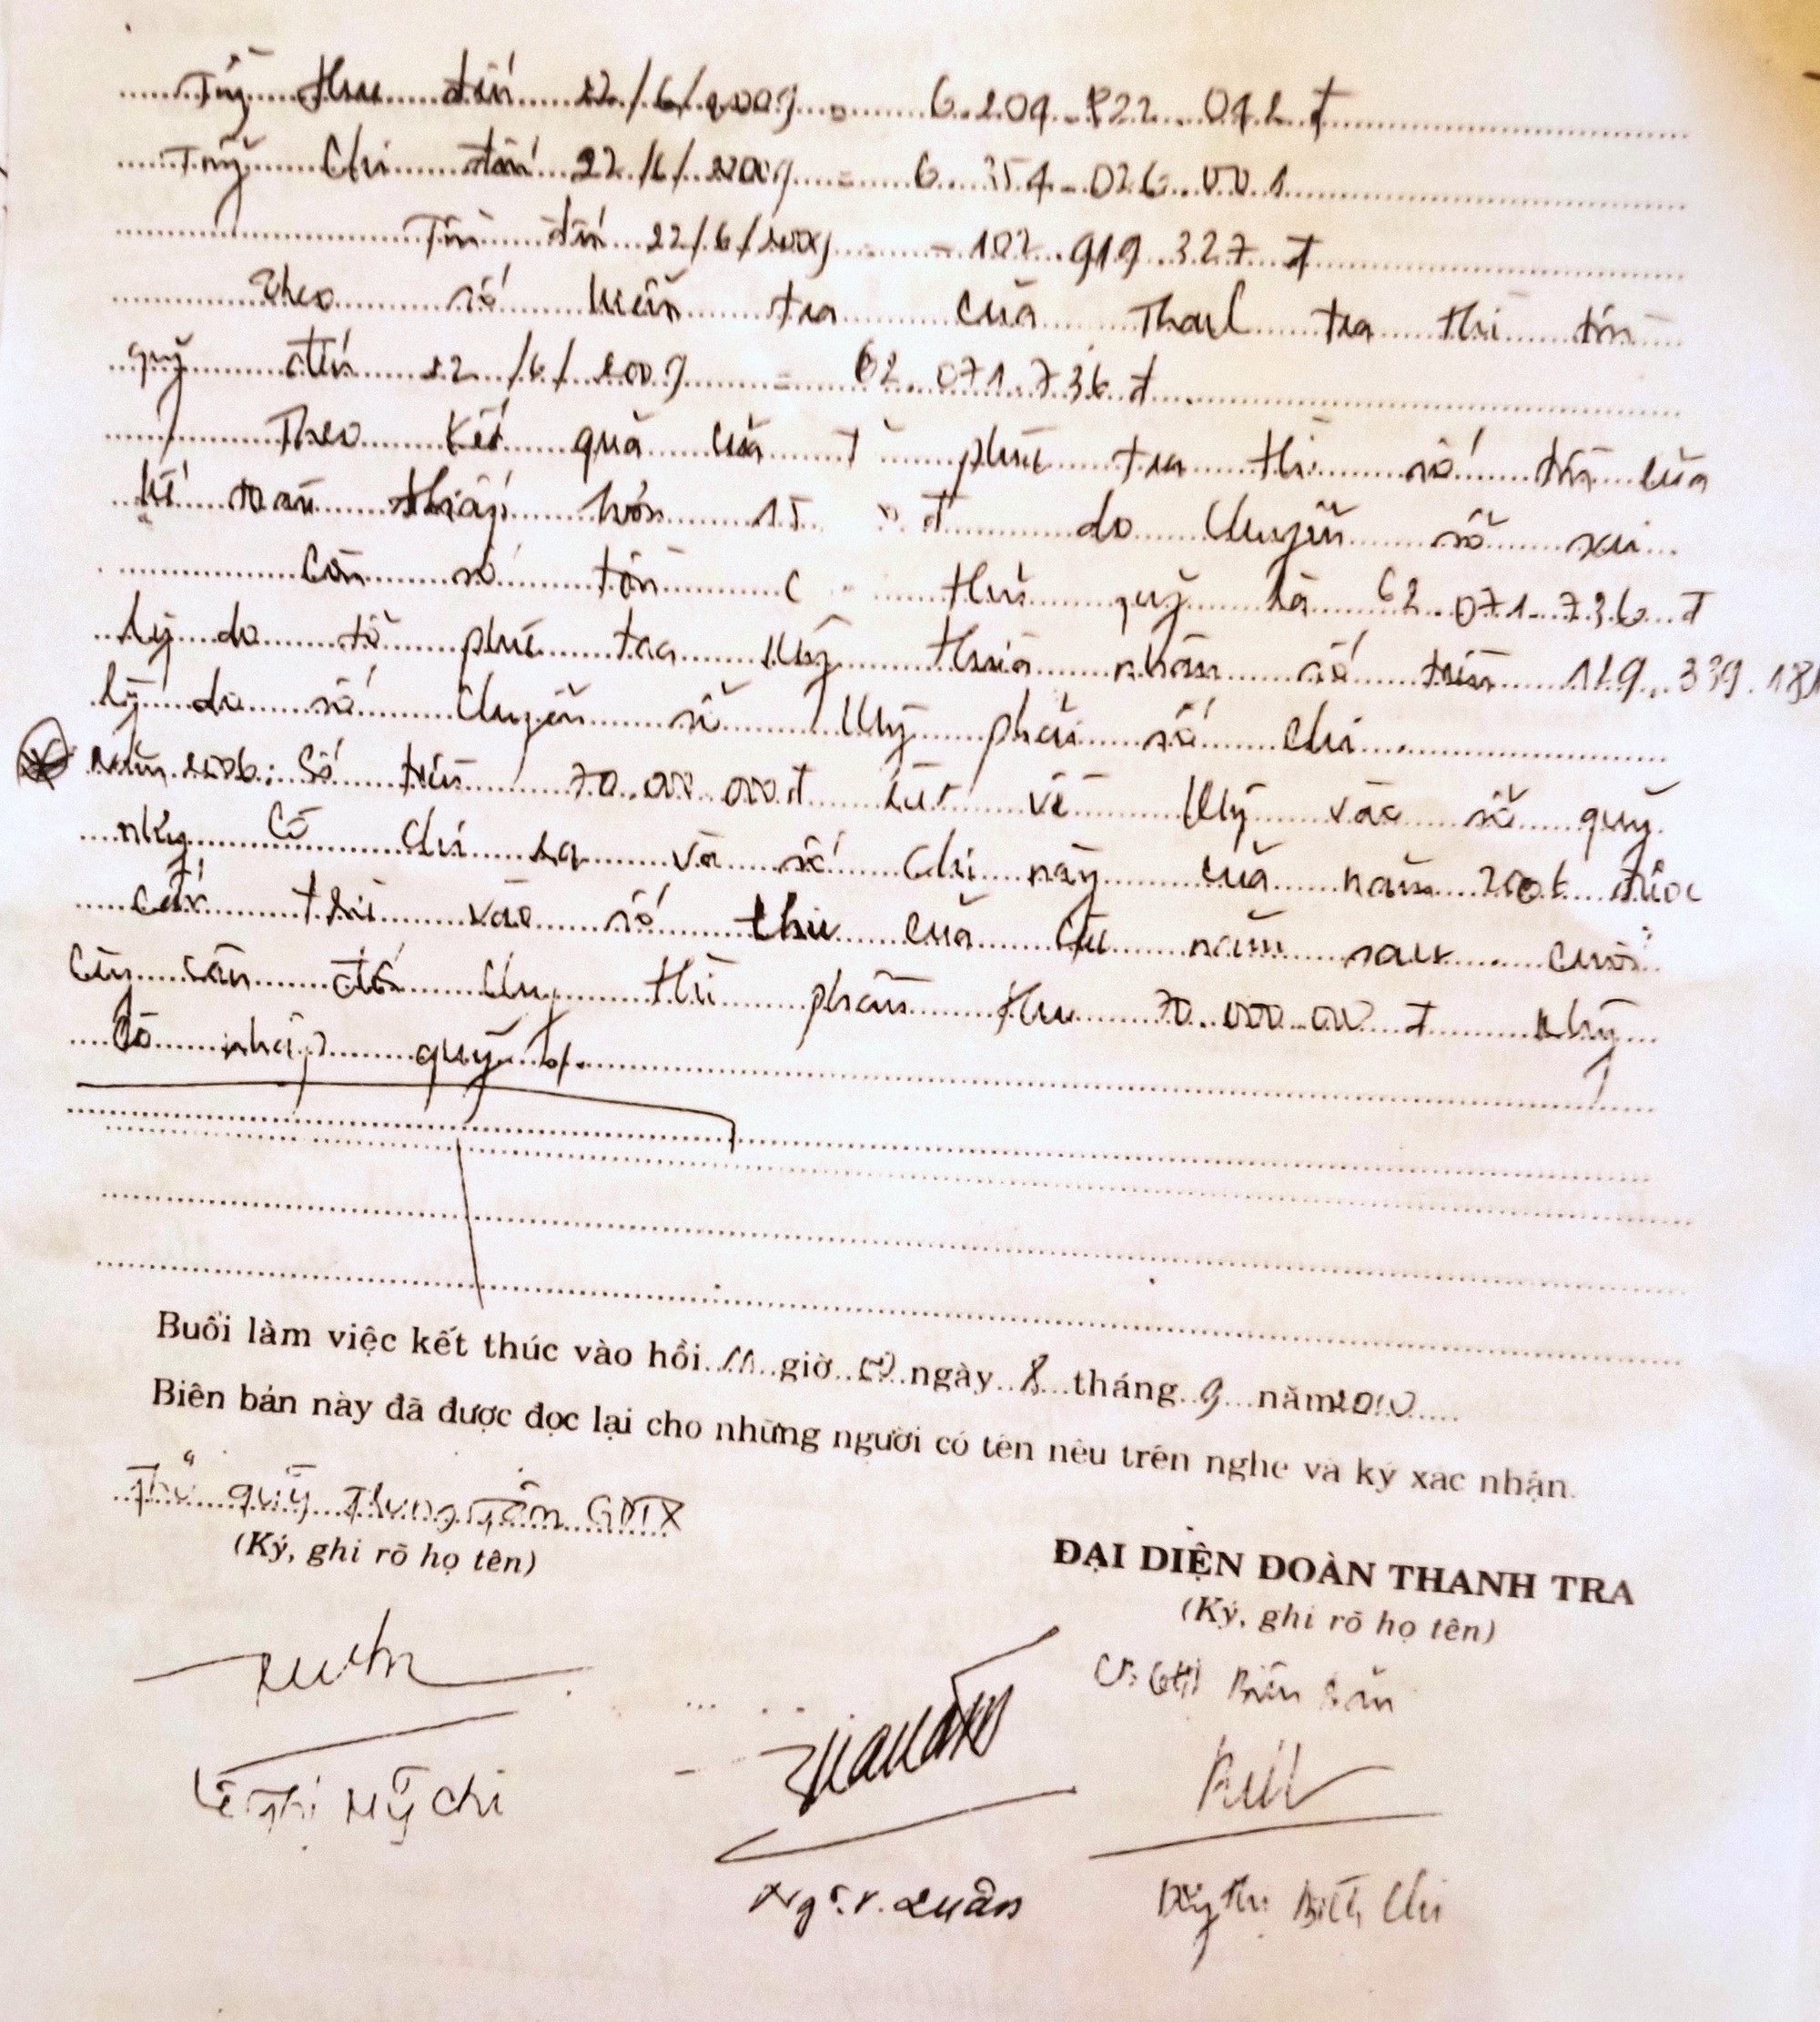 Tồng thu đến 22/6/2009 = 6.209.822.042 đ
Tổng Chi đến 22/6/2009 = 6.354.026.001
Tồn đến 22/6/2009 = -102.919.327 đ
Theo số kiểm tra của Thanh tra thì tồn
quỹ đến 22/6/2009 = 62.071.736 đ.
Theo kết quả của phúc tra thì số tồn của
kế toán thấp hơn đ do chuyển sổ sai
Còn số tồn thủ quỹ là 62.071.736 đ
lý do tổ phúc tra không thừa nhận số tiền 119.339.181
lý do số chuyển sổ không phải số chi
năm 2006: Số tiền 70.000.000đ rút về không vào sổ quỹ
nhưng có chi ra và số chi này của năm 2006 được
cấn trừ vào số thu của các năm sau. cuối
cùng cân đối chung thì phần thu 70.000.000 đ không
có nhập quỹ
Buổi làm việc kết thúc vào hồi 11 giờ 00 ngày 8 tháng 9 năm 2010
Biên bản này đã được đọc lại cho những người có tên nêu trên nghe và ký xác nhận.
Thủ quỹ Trung Tâm GDTX
(Ký, ghi rõ họ tên)
ĐẠI DIỆN ĐOÀN THANH TRA
(Ký, ghi rõ họ tên)
Biên bản
Lê Thị Mỹ Chi
Ng. V. Quân
Thị Bích Chi